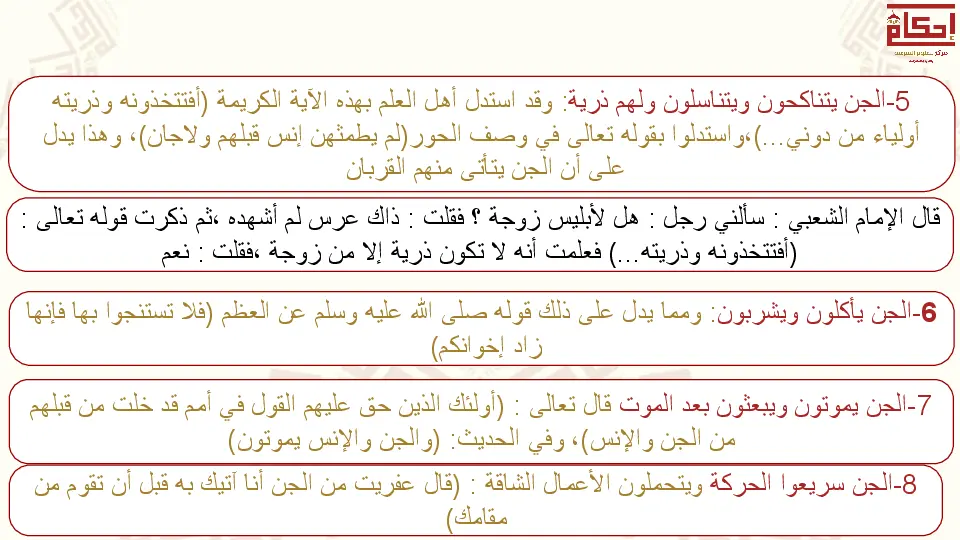 إحكام
5-الجن يتناكحون ويتناسلون ولهم ذرية: وقد استدل أهل العلم بهذه الآية الكريمة (أفتتخذونه وذريته
أولياء من دوني...)،واستدلوا بقوله تعالى في وصف الحور(لم يطمثهن إنس قبلهم ولاجان)، وهذا يدل
على أن الجن يتأتى منهم القربان
قال الإمام الشعبي : سألني رجل : هل لأبليس زوجة ؟ فقلت : ذاك عرس لم أشهده ،ثم ذكرت قوله تعالى :
(أفتتخذونه وذريته...) فعلمت أنه لا تكون ذرية إلا من زوجة ،فقلت : نعم
6-الجن يأكلون ويشربون: ومما يدل على ذلك قوله صلى الله عليه وسلم عن العظم (فلا تستنجوا بها فإنها
زاد إخوانكم)
7-الجن يموتون ويبعثون بعد الموت قال تعالى : (أولئك الذين حق عليهم القول في أمم قد خلت من قبلهم
من الجن والإنس)، وفي الحديث: (والجن والإنس يموتون)
8-الجن سريعوا الحركة ويتحملون الأعمال الشاقة : (قال عفريت من الجن أنا آتيك به قبل أن تقوم من
مقامك)